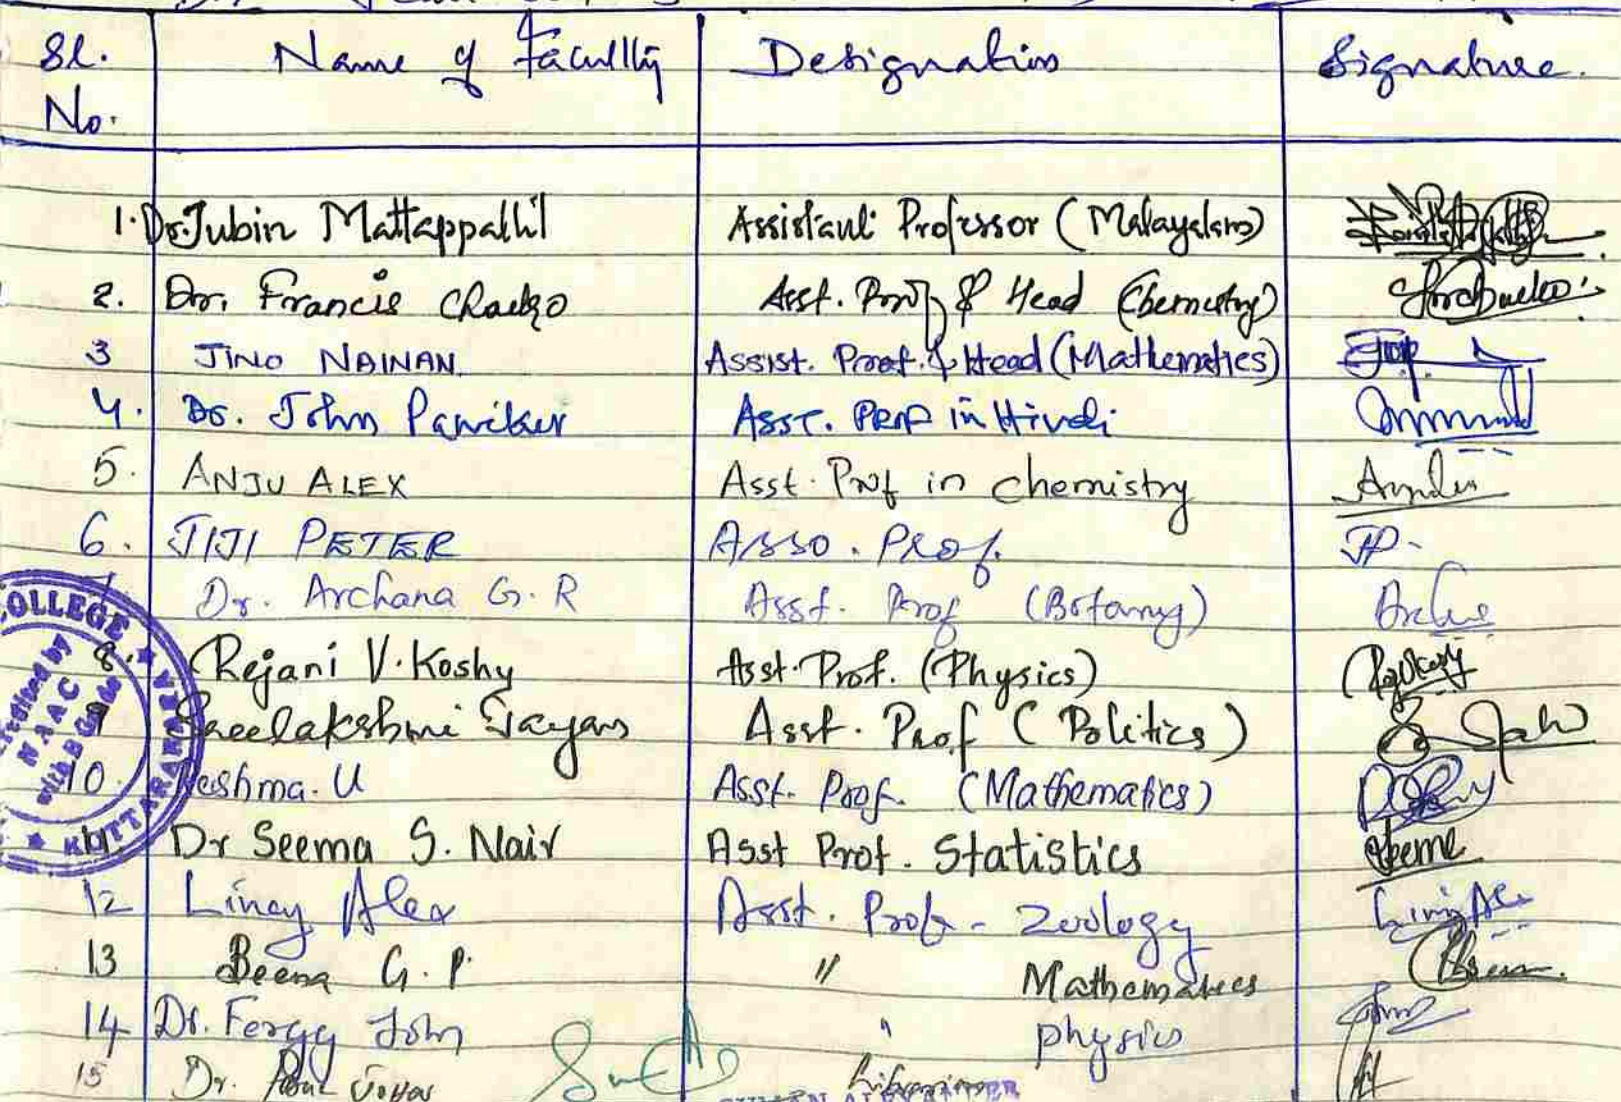 Sl. No. Name of Faculty Designation Signature.
1. Dr. Jubin Mattappallil Assistant Professor (Malayalam)
2. Dr. Francis Chacko Asst. Prof & Head (Chemistry)
3 JINO NAINAN Assist. Prof. & Head (Mathematics)
4. Dr. John Paniker Asst. Prof in Hindi
5. ANJU ALEX Asst. Prof in chemistry
6. JIJI PETER Asso. Prof. JP
Dr. Archana G. R Asst. Prof (Botany)
8. Rejani V. Koshy Asst. Prof. (Physics)
Sreelakshmi Jayan Asst. Prof (Politics)
10. Reshma. U Asst. Prof. (Mathematics)
11 Dr Seema S. Nair Asst Prof. Statistics
12 Lincy Alex Asst. Prof - Zoology
13 Beena G. P. " Mathematics
14 Dr. Fergy John " physics
15 Dr. Librarian
COLLEGE ★
NAAC
with B Grade